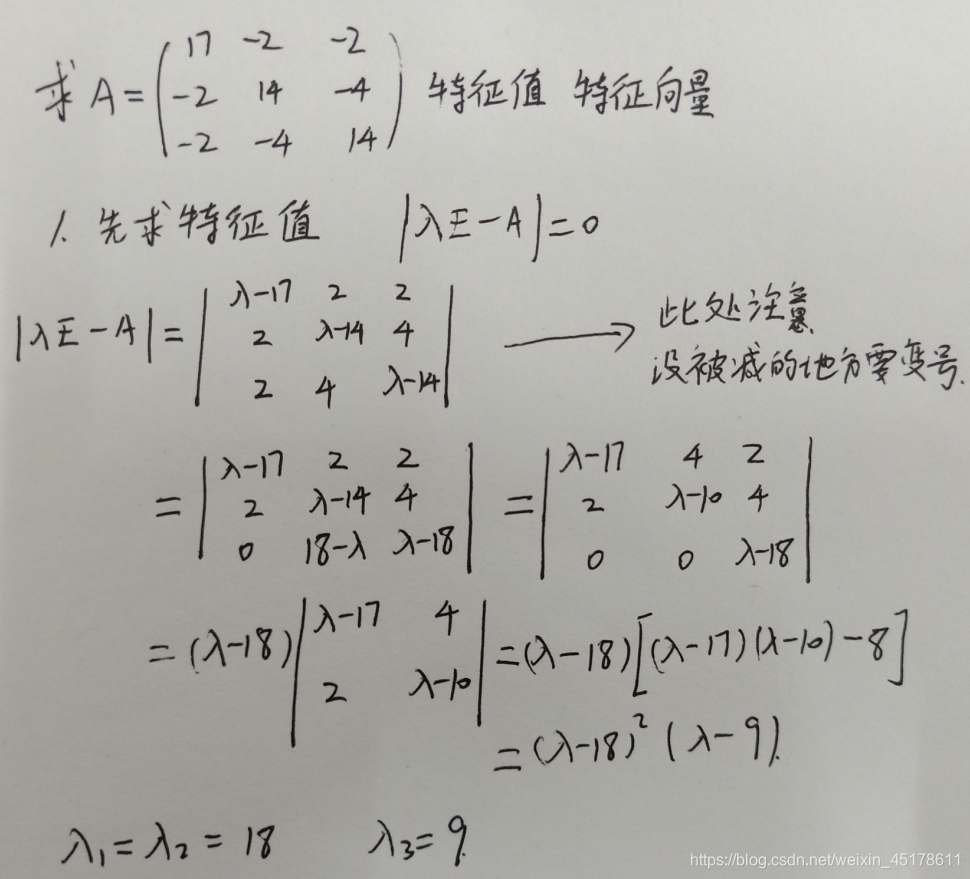 求 A = ( 17 -2 -2
-2 14 -4
-2 -4 14 ) 特征值 特征向量
1. 先求特征值 |λE-A|=0
|λE-A| = | λ-17 2 2
2 λ-14 4
2 4 λ-14 | → 此处注意
没被减的地方要变号.
= | λ-17 2 2
2 λ-14 4
0 18-λ λ-18 | = | λ-17 4 2
2 λ-10 4
0 0 λ-18 |
= (λ-18) | λ-17 4
2 λ-10 | = (λ-18)[(λ-17)(λ-10)-8]
= (λ-18)² (λ-9).
λ₁=λ₂=18 λ₃=9.
https://blog.csdn.net/weixin_45178611